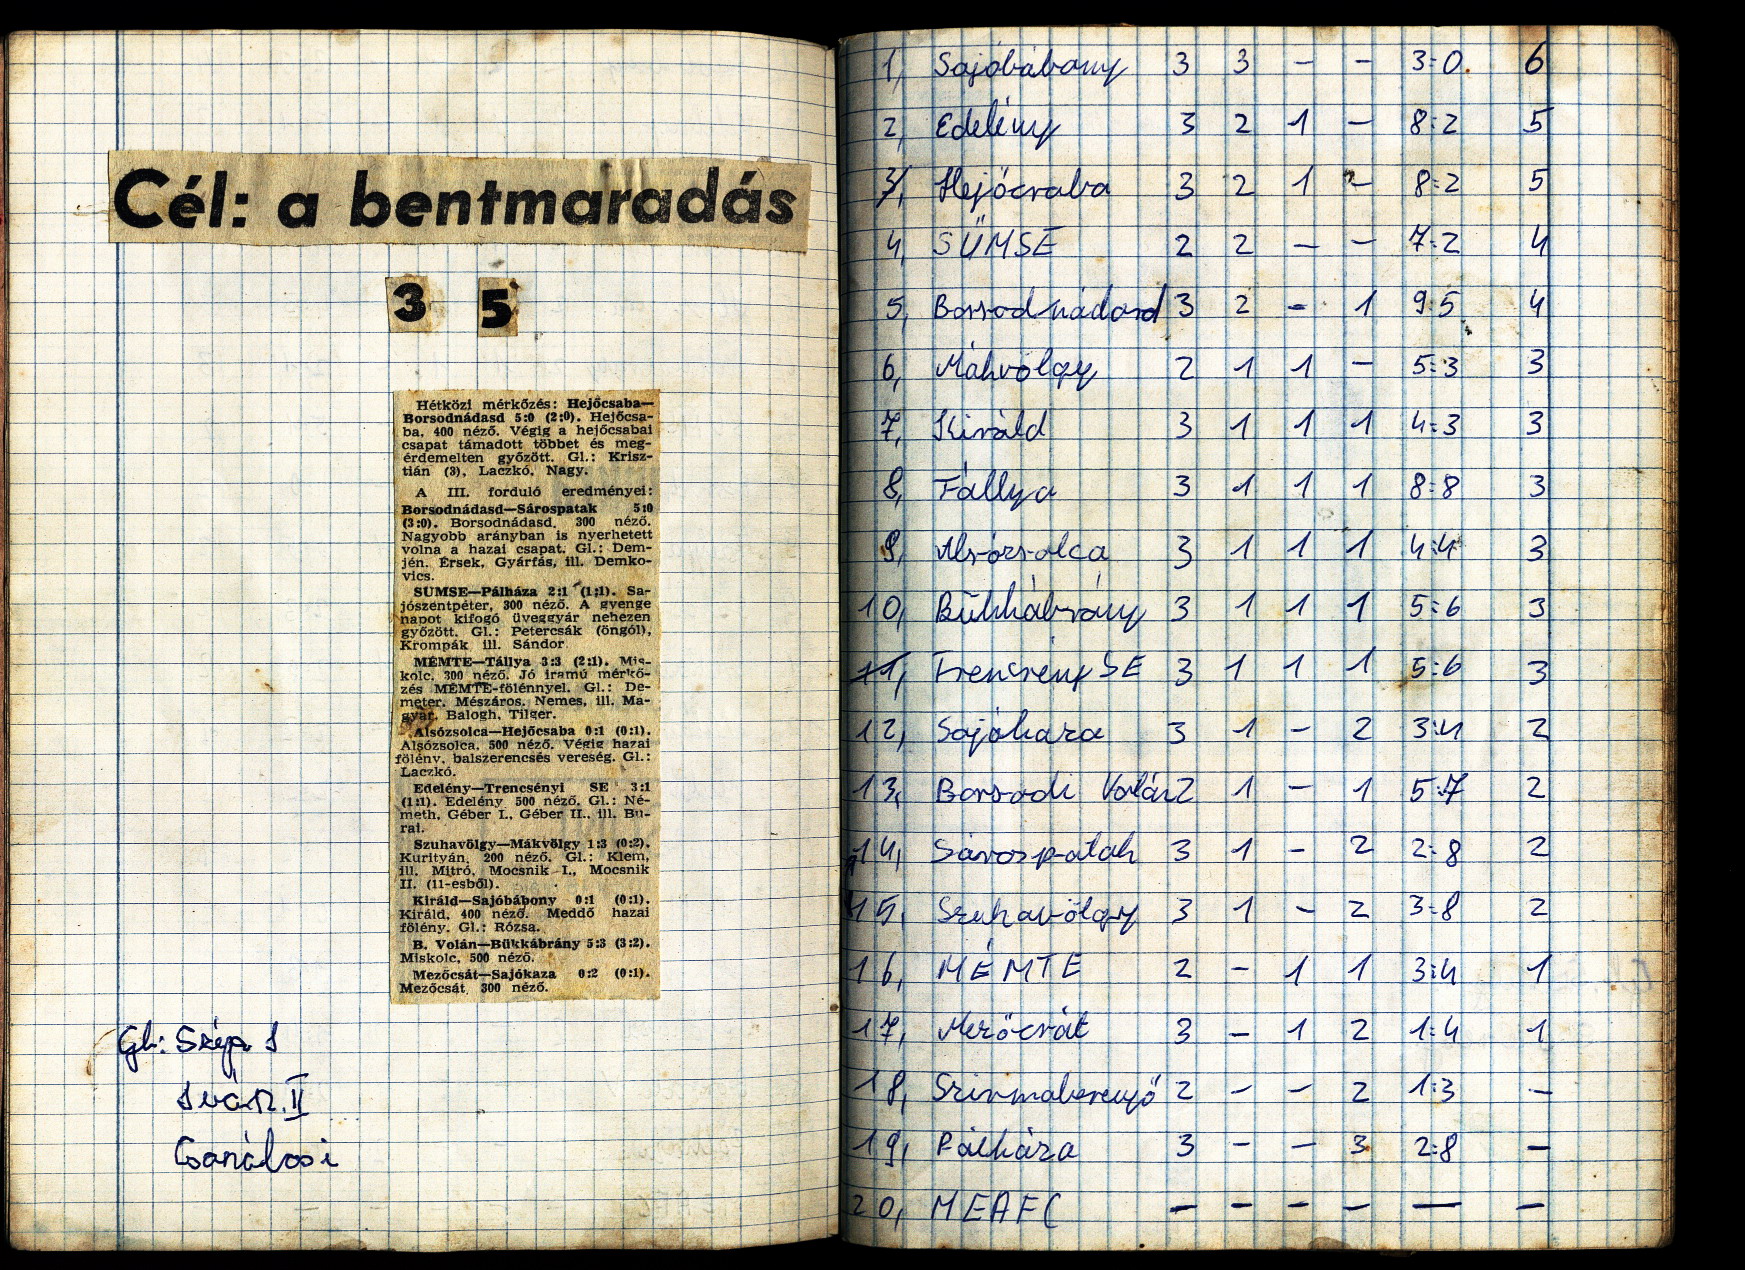 Cél: a bentmaradás
3 5
Hétközi mérkőzés: Hejőcsaba—
Borsodnádasd 5:0 (2:0). Hejőcsa-
ba, 400 néző. Végig a hejőcsabai
csapat támadott többet és meg-
érdemelten győzött. Gl.: Krisz-
tián (3), Laczkó, Nagy.
A III. forduló eredményei:
Borsodnádasd—Sárospatak 5:0
(3:0). Borsodnádasd, 300 néző.
Nagyobb arányban is nyerhetett
volna a hazai csapat. Gl.: Dem-
jén, Érsek, Gyárfás, ill. Demko-
vics.
SÜMSE—Pálháza 2:1 (1:1). Sa-
jószentpéter, 300 néző. A gyenge
napot kifogó üveggyár nehezen
győzött. Gl.: Petercsák (öngól),
Krompák ill. Sándor.
MÉMTE—Tállya 3:3 (2:1). Mis-
kolc, 300 néző. Jó iramú mérkő-
zés MÉMTE-fölénnyel. Gl.: De-
meter, Mészáros, Nemes, ill. Ma-
gyar, Balogh, Tilger.
Alsózsolca—Hejőcsaba 0:1 (0:1).
Alsózsolca, 500 néző. Végig hazai
fölény, balszerencsés vereség. Gl.:
Laczkó.
Edelény—Trencsényi SE 3:1
(1:1). Edelény 500 néző. Gl.: Né-
meth, Géber I., Géber II., ill. Bu-
rai.
Szuhavölgy—Mákvölgy 1:3 (0:2).
Kurityán, 200 néző. Gl.: Klem,
ill. Mitró, Mocsnik I., Mocsnik
II. (11-esből).
Királd—Sajóbábony 0:1 (0:1).
Királd, 400 néző. Meddő hazai
fölény. Gl.: Rózsa.
B. Volán—Bükkábrány 5:3 (3:2).
Miskolc, 500 néző.
Mezőcsát—Sajókaza 0:2 (0:1).
Mezőcsát 300 néző.
Gl: Szép I
Iván II
Csanálosi
1, Sajóbábony 3 3 - - 3:0. 6
2, Edelény 3 2 1 - 8:2 5
3, Hejőcsaba 3 2 1 - 8:2 5
4, SÜMSE 2 2 - - 7:2 4
5, Borsodnádasd 3 2 - 1 9:5 4
6, Mákvölgy 2 1 1 - 5:3 3
7, Királd 3 1 1 1 4:3 3
8, Tállya 3 1 1 1 8:8 3
9, Alsózsolca 3 1 1 1 4:4 3
10, Bükkábrány 3 1 1 1 5:6 3
11, Trencsényi SE 3 1 1 1 5:6 3
12, Sajókaza 3 1 - 2 3:4 2
13, Borsodi Volán 2 1 - 1 5:7 2
14, Sárospatak 3 1 - 2 2:8 2
15, Szuhavölgy 3 1 - 2 3:8 2
16, MÉMTE 2 - 1 1 3:4 1
17, Mezőcsát 3 - 1 2 1:4 1
18, Szirmabesenyő 2 - - 2 1:3 -
19, Pálháza 3 - - 3 2:8 -
20, MEAFC - - - - - -